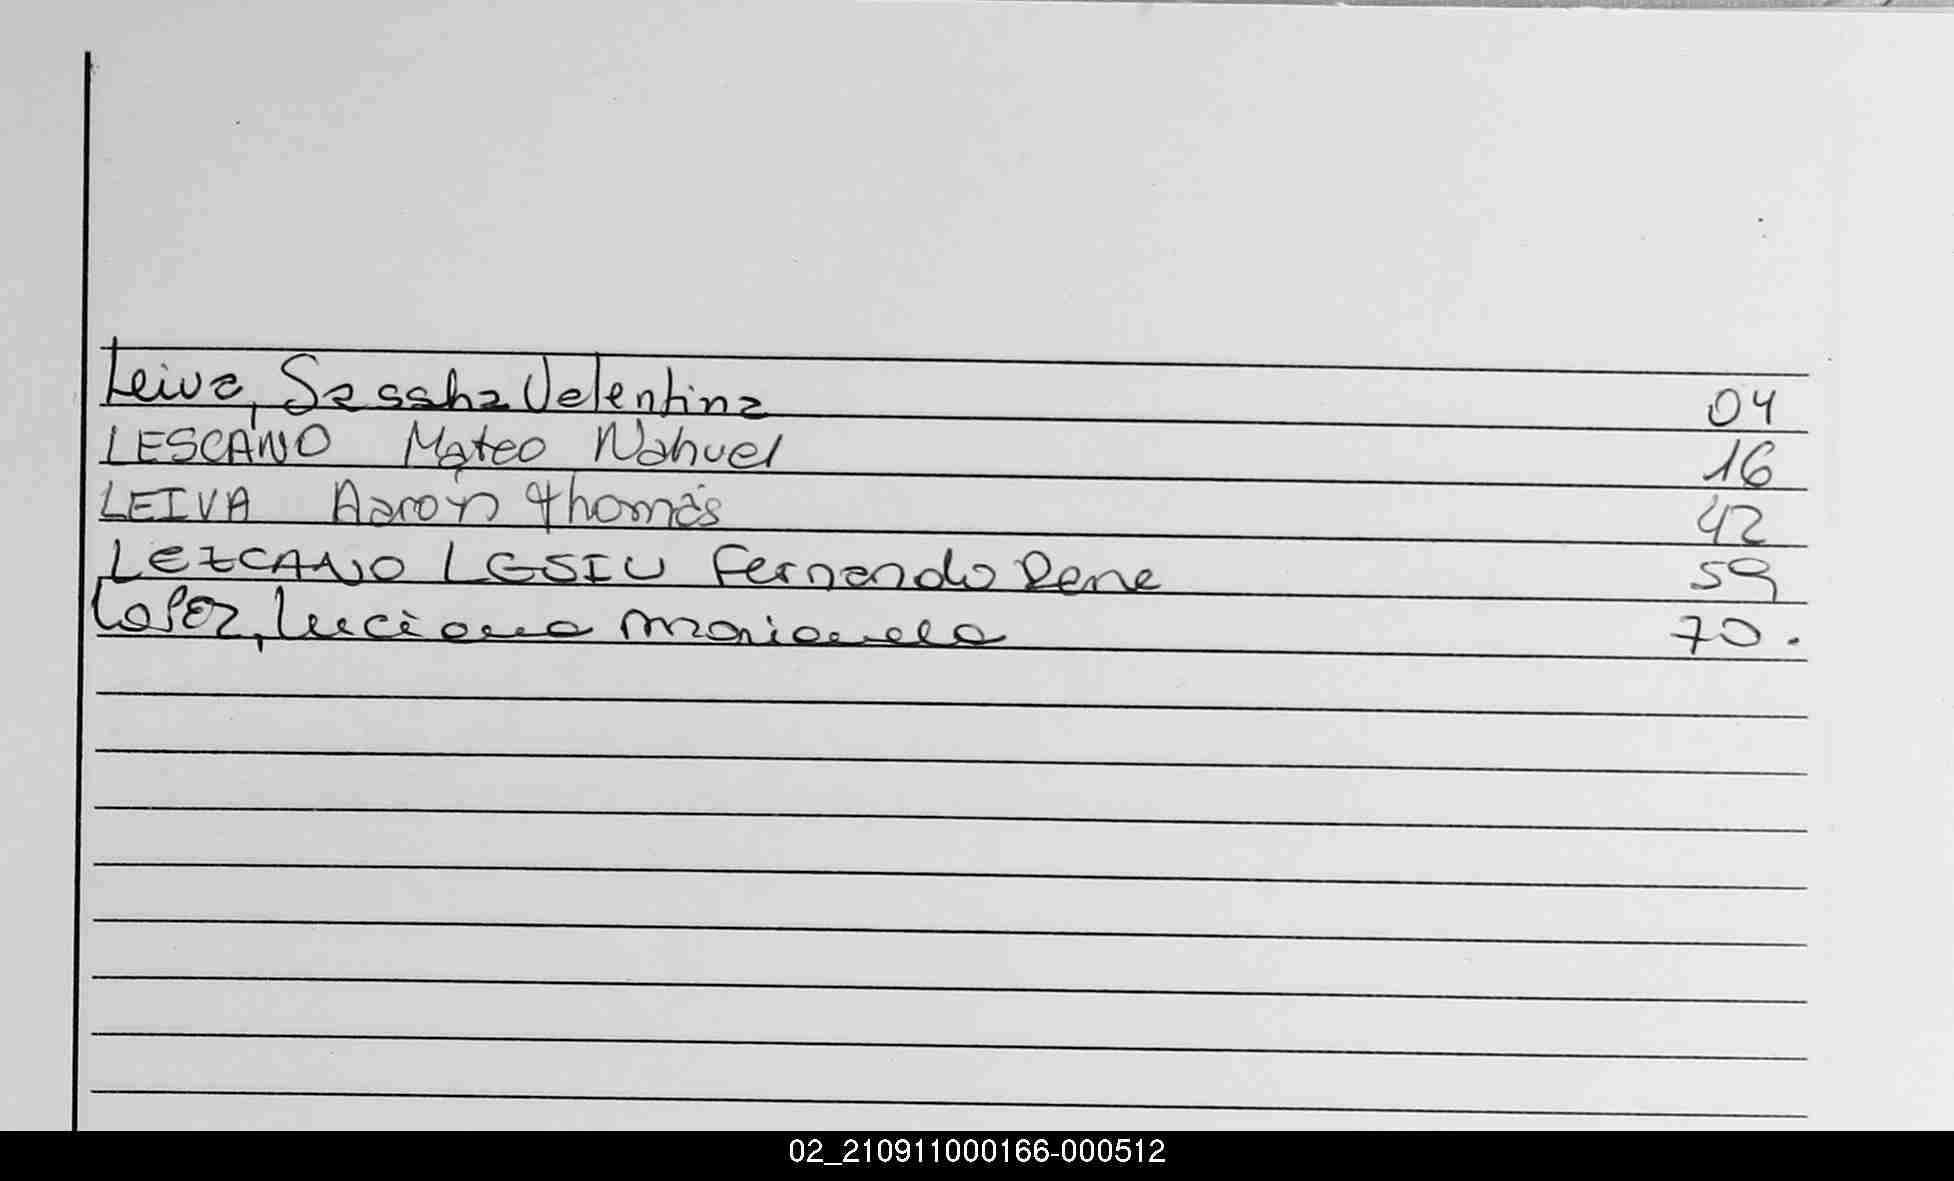 Leiva, Sassha Valentina 04
LESCANO Mateo Nahuel 16
LEIVA Aaron Thomás 42
LEZCANO LESIU Fernando Rene 59
Lopez, Luciana Marianela 70.
02_210911000166-000512